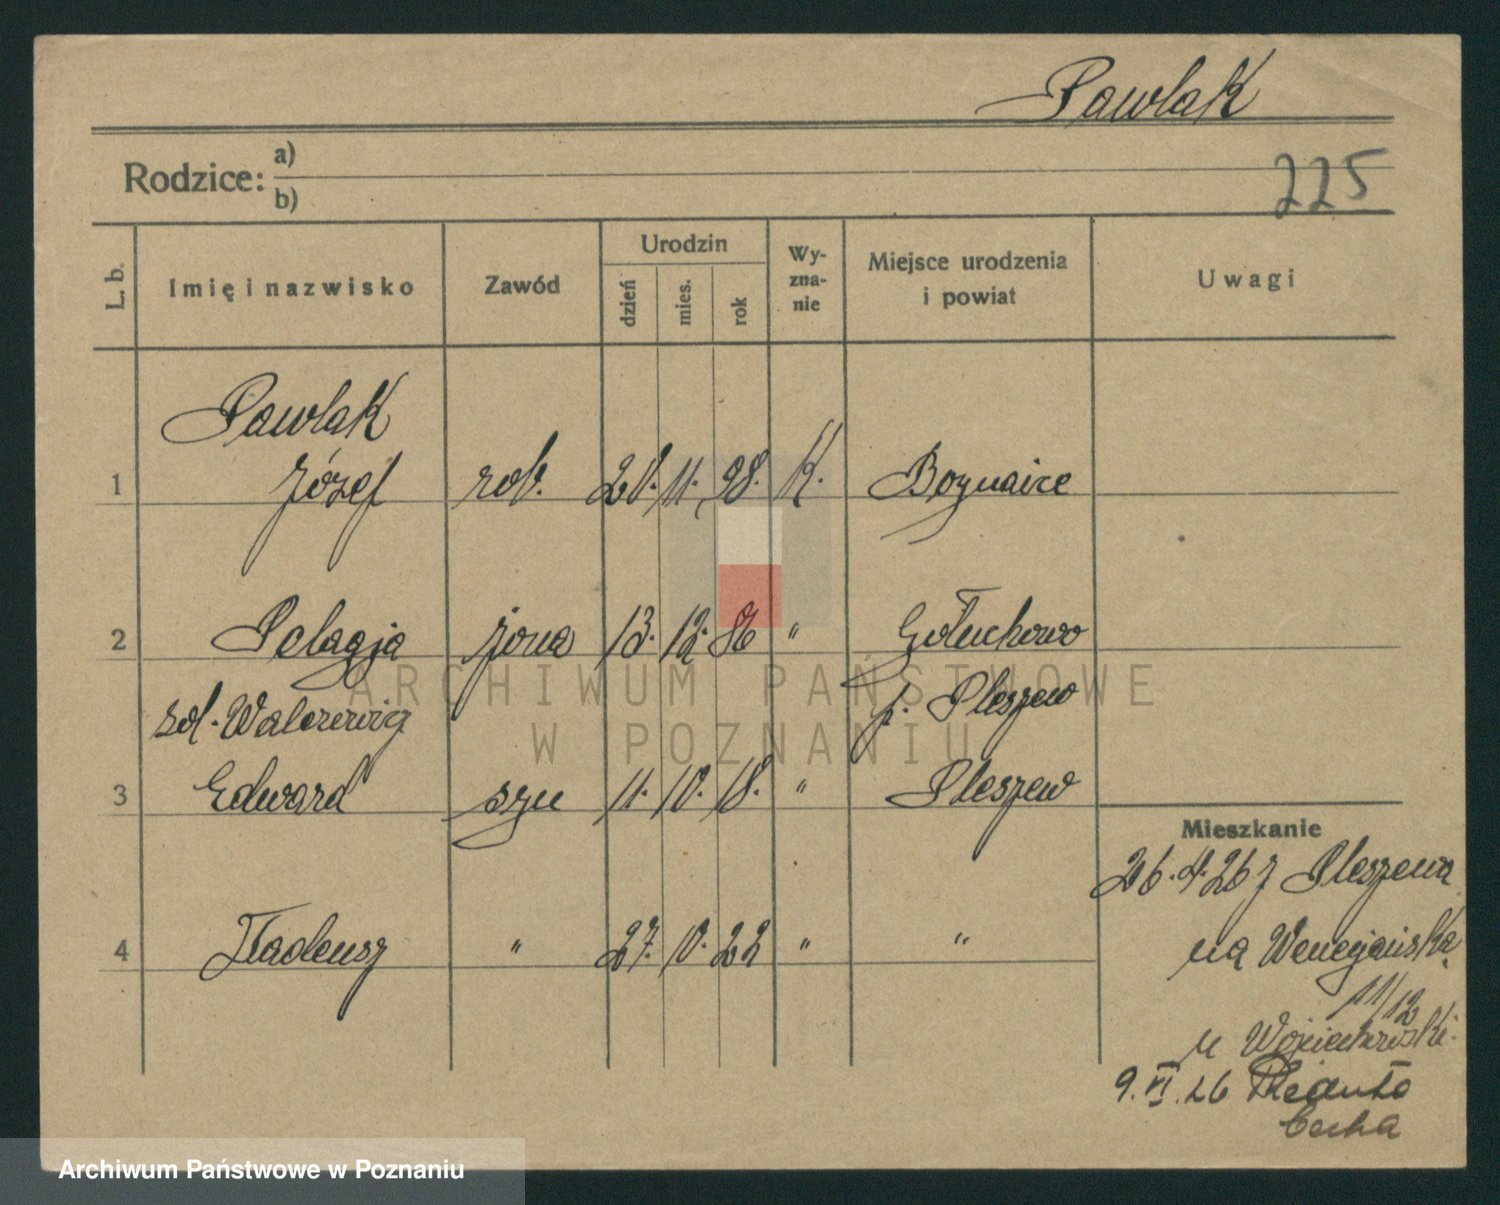 Pawlak
Rodzice: a)
b)
225
L. b.
Imię i nazwisko
Zawód
Urodzin
dzień
mies.
rok
Wy-
zna-
nie
Miejsce urodzenia
i powiat
Uwagi
Pawlak
1 Józef rob. 20. 11. 98. K.
2 Pelagja żona 13. 12. " Gołuchowo
p. Pleszew
3 Edward syn 11. 10. 18. " Pleszew
4 Tadeusz " 27. 10. 22 " "
Mieszkanie
26.4.26 z Pleszewa
na Wenecjańska
11/12
u Wojciechowski.
9.VI.26
ARCHIWUM PAŃSTWOWE
W POZNANIU
Archiwum Państwowe w Poznaniu